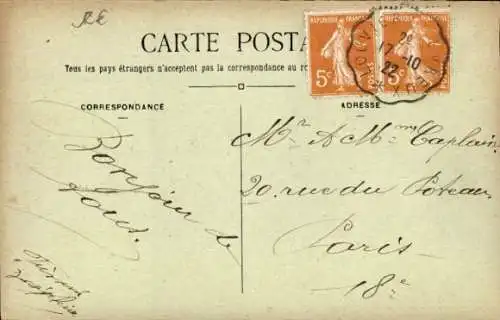 RF
CARTE POSTA
Tous les pays étrangers n'acceptent pas la correspondance au
RÉPUBLIQUE FRANÇAISE
5c
5c
29
17-10
22
CORRESPONDANCE
ADRESSE
Bonjour de
tous.
Mr & Mme Caplain
20. rue du Poteau
Paris
18e